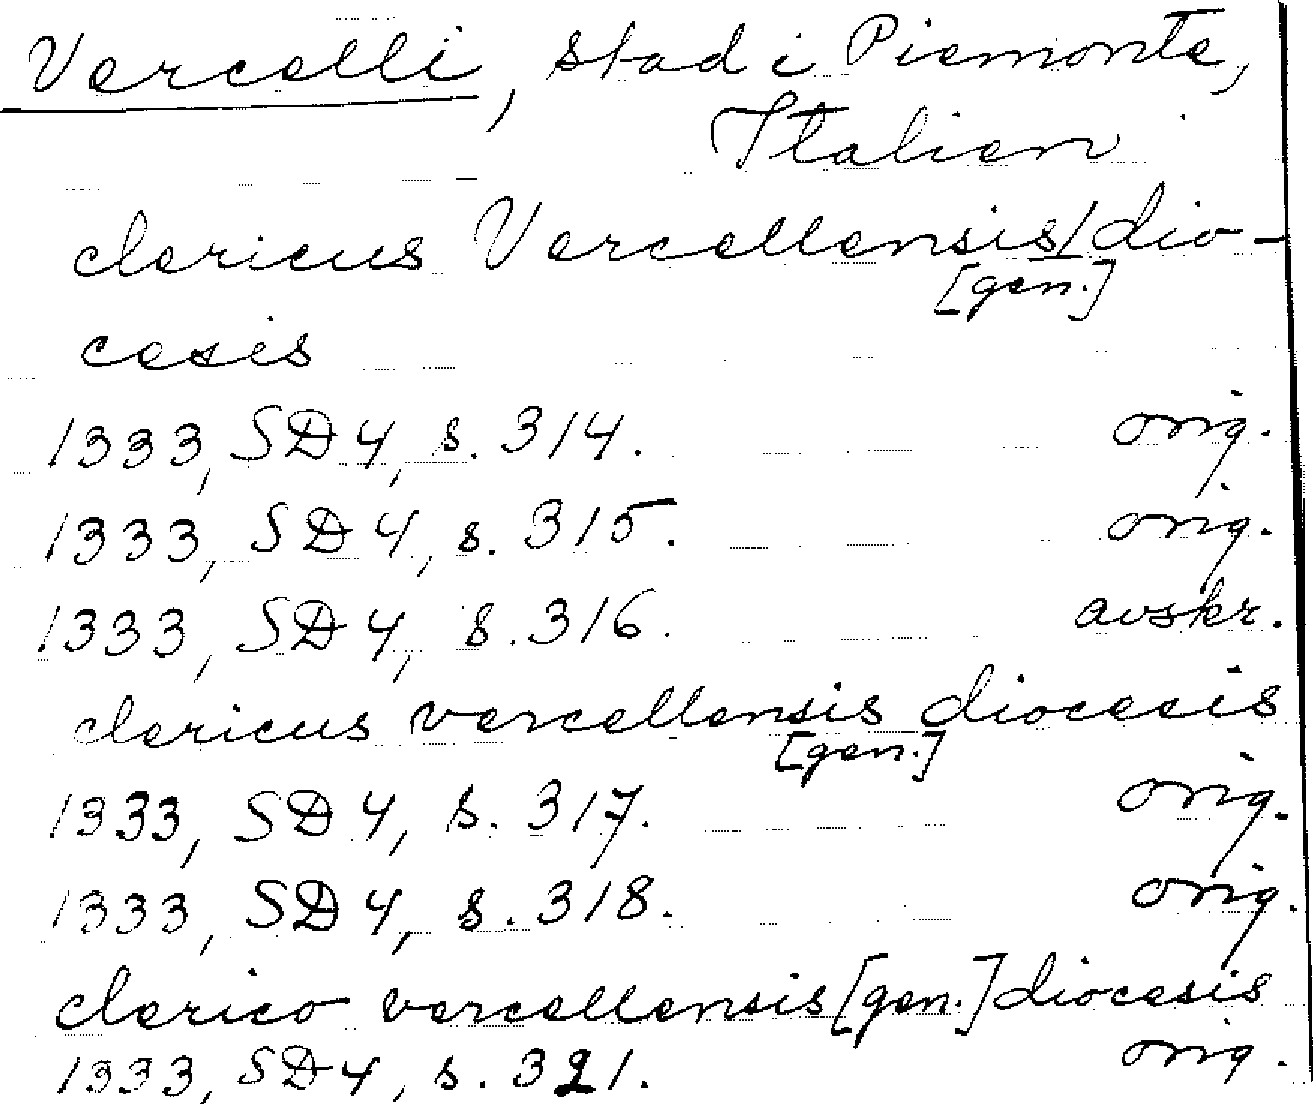 Vercelli, stad i Piemonte,
Italien
clericus Vercellensis/dio-
[gen.]
cesis
1333, SD 4, s. 314. orig.
1333, SD 4, s. 315. orig.
1333, SD 4, s. 316. avskr.
clericus vercellensis diocesis
[gen.]
1333, SD 4, s. 317. orig.
1333, SD 4, s. 318. orig.
clerico vercellensis [gen.] diocesis
1333, SD 4, s. 321. orig.